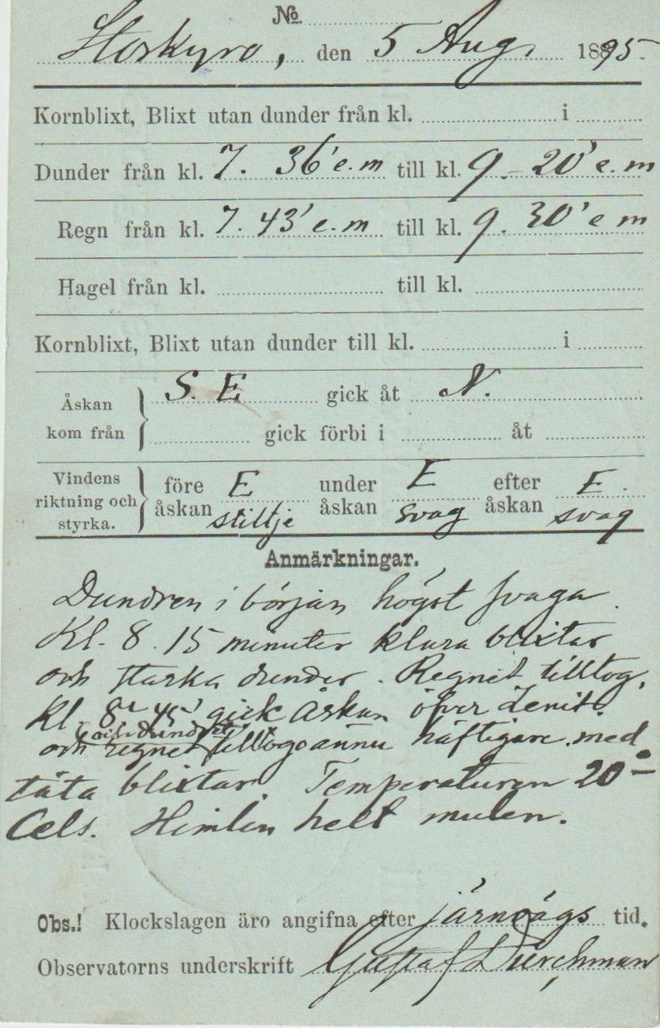 No
Storkyro, den 5 Aug. 1895.
Kornblixt, Blixt utan dunder från kl. i
Dunder från kl. 7. 36' e.m till kl. 9 - 20' e. m
Regn från kl. 7. 43' e.m till kl. 9. 30' e m
Hagel från kl. till kl.
Kornblixt, Blixt utan dunder till kl. i
Åskan kom från } S. E gick åt N.
gick förbi i åt
Vindens riktning och styrka. } före åskan E stiltje under åskan E svag efter åskan E. svag
Anmärkningar.
Dundren i början högst svaga.
Kl. 8. 15 minuter klara blixtar
och starka dunder. Regnet tilltog.
Kl. 8 45' gick Åskan över Zenit.
och dundret
och regnet tilltogo ännu häftigare med
täta blixtar. Temperaturen 20°
Cels. Himlen helt mulen.
Obs.! Klockslagen äro angifna efter järnvägs tid.
Observatorns underskrift Gustaf Durchman